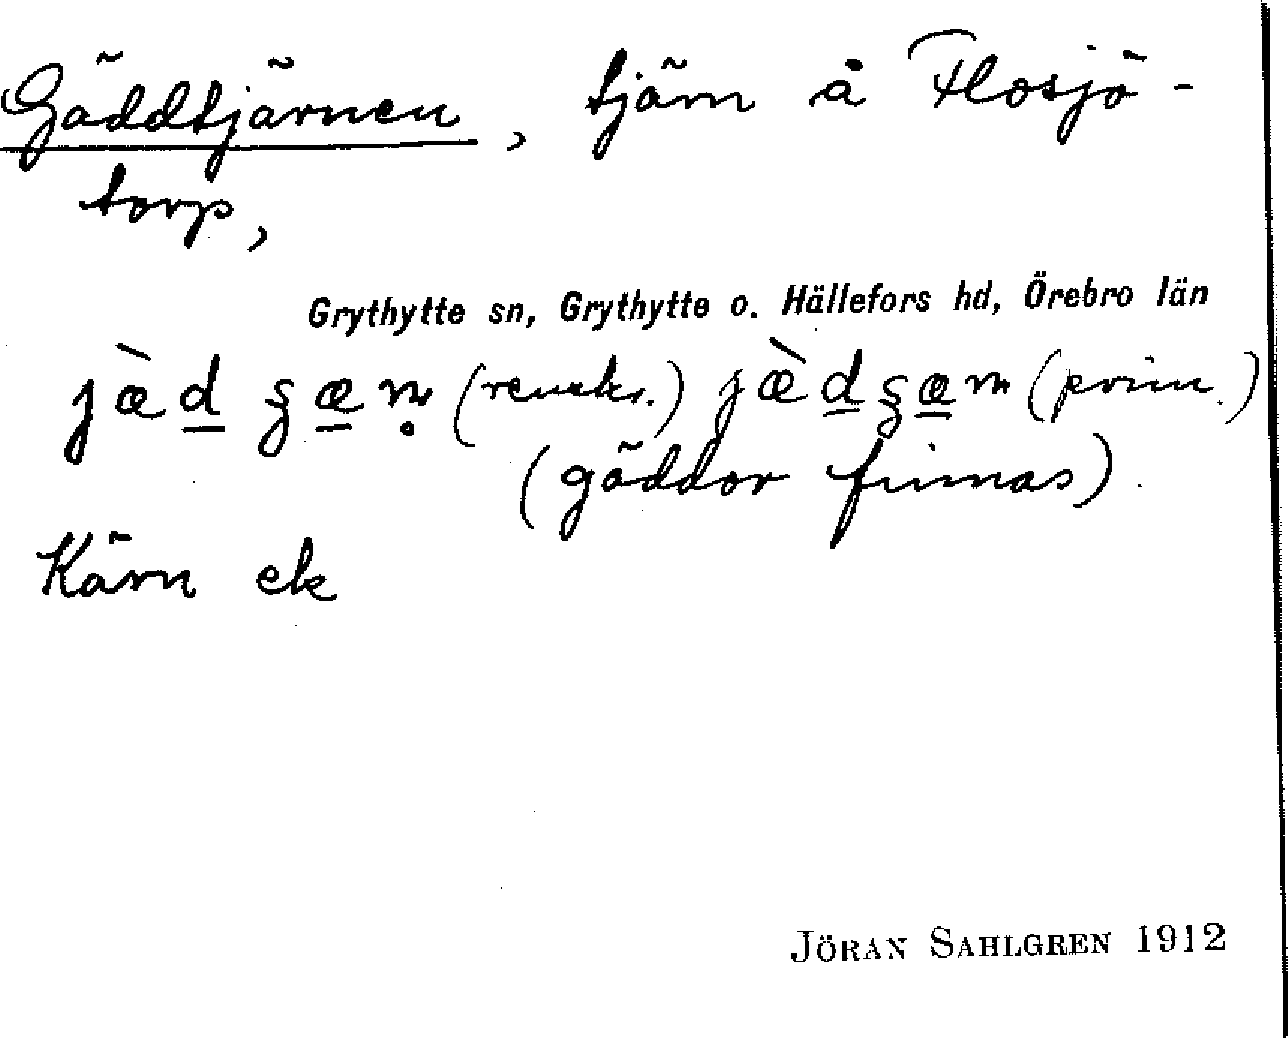 Gäddtjärnen, tjärn å Flosjö-
torp,
Grythytte sn, Grythytte o. Hällefors hd, Örebro län
jæ̀d̲ ʂæ̲n̥ (renskr.) jæ̀d̲ʂæ̲n (prim.)
(gäddor finnas).
Kärn ek
JÖRAN SAHLGREN 1912